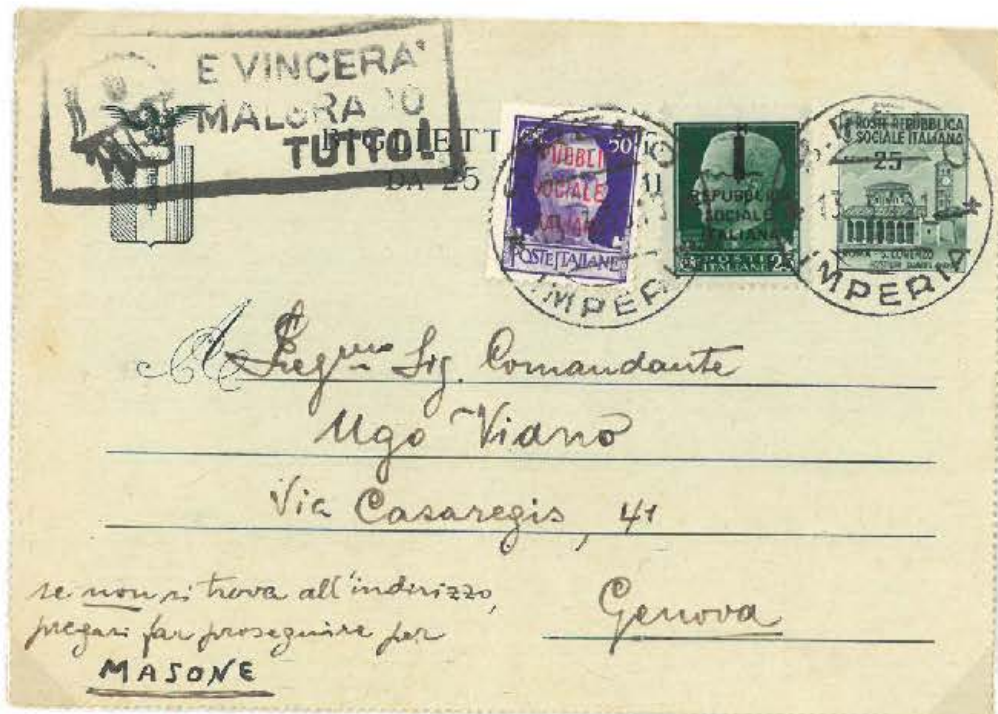 E VINCERA'
MALGRADO
TUTTO!
BIGLIETTO
DA 25
50
REPUBBLICA
SOCIALE
ITALIANA
POSTE ITALIANE
REPUBBLICA
SOCIALE
ITALIANA
POSTE
ITALIANE
25
POSTE REPUBBLICA
SOCIALE ITALIANA
25
IMPERIA
IMPERIA
A Preg.mo Sig. Comandante
Ugo Viano
Via Casaregis, 41
Genova
se non si trova all'indirizzo,
pregasi far proseguire per
MASONE